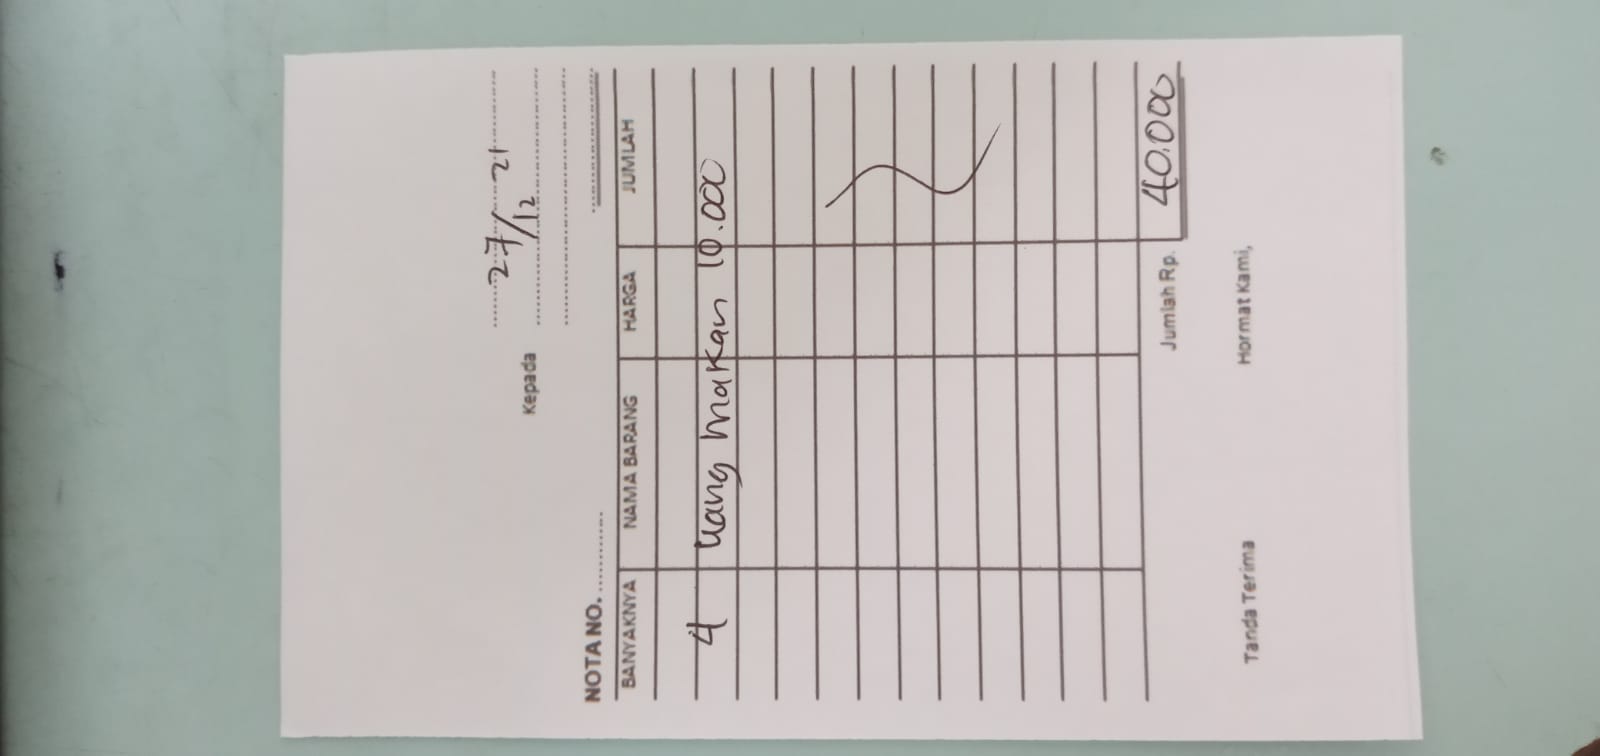 27/12 21
Kepada
NOTA NO.
BANYAKNYA NAMA BARANG HARGA JUMLAH
4 Uang makan 10.000
Jumlah Rp. 40.000
Tanda Terima Hormat Kami,